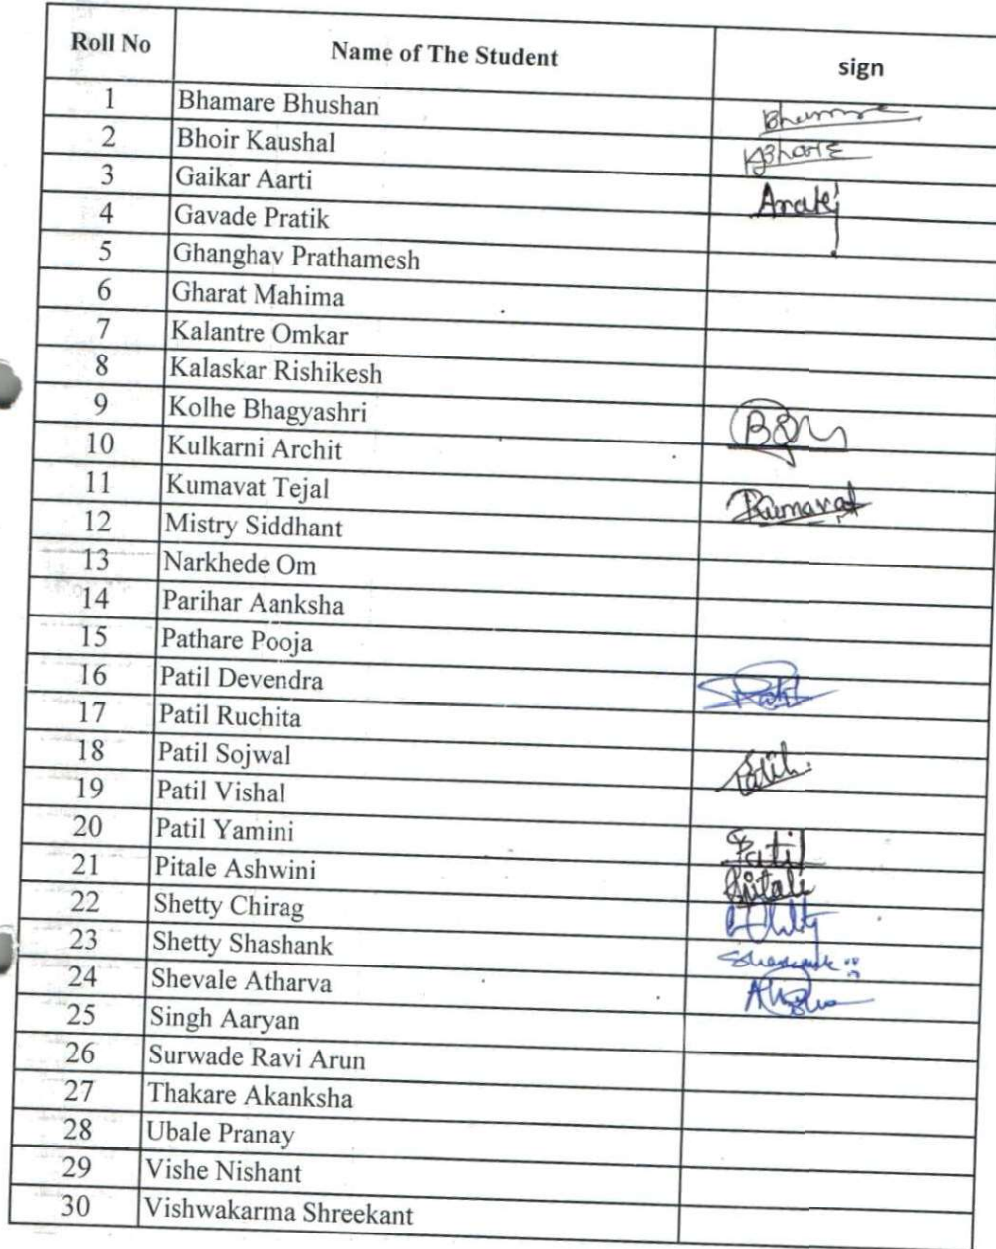 Roll No Name of The Student sign
1 Bhamare Bhushan
2 Bhoir Kaushal
3 Gaikar Aarti
4 Gavade Pratik
5 Ghanghav Prathamesh
6 Gharat Mahima
7 Kalantre Omkar
8 Kalaskar Rishikesh
9 Kolhe Bhagyashri
10 Kulkarni Archit
11 Kumavat Tejal Kumavat
12 Mistry Siddhant
13 Narkhede Om
14 Parihar Aanksha
15 Pathare Pooja
16 Patil Devendra
17 Patil Ruchita
18 Patil Sojwal Patil
19 Patil Vishal
20 Patil Yamini Patil
21 Pitale Ashwini Pitale
22 Shetty Chirag
23 Shetty Shashank
24 Shevale Atharva
25 Singh Aaryan
26 Surwade Ravi Arun
27 Thakare Akanksha
28 Ubale Pranay
29 Vishe Nishant
30 Vishwakarma Shreekant